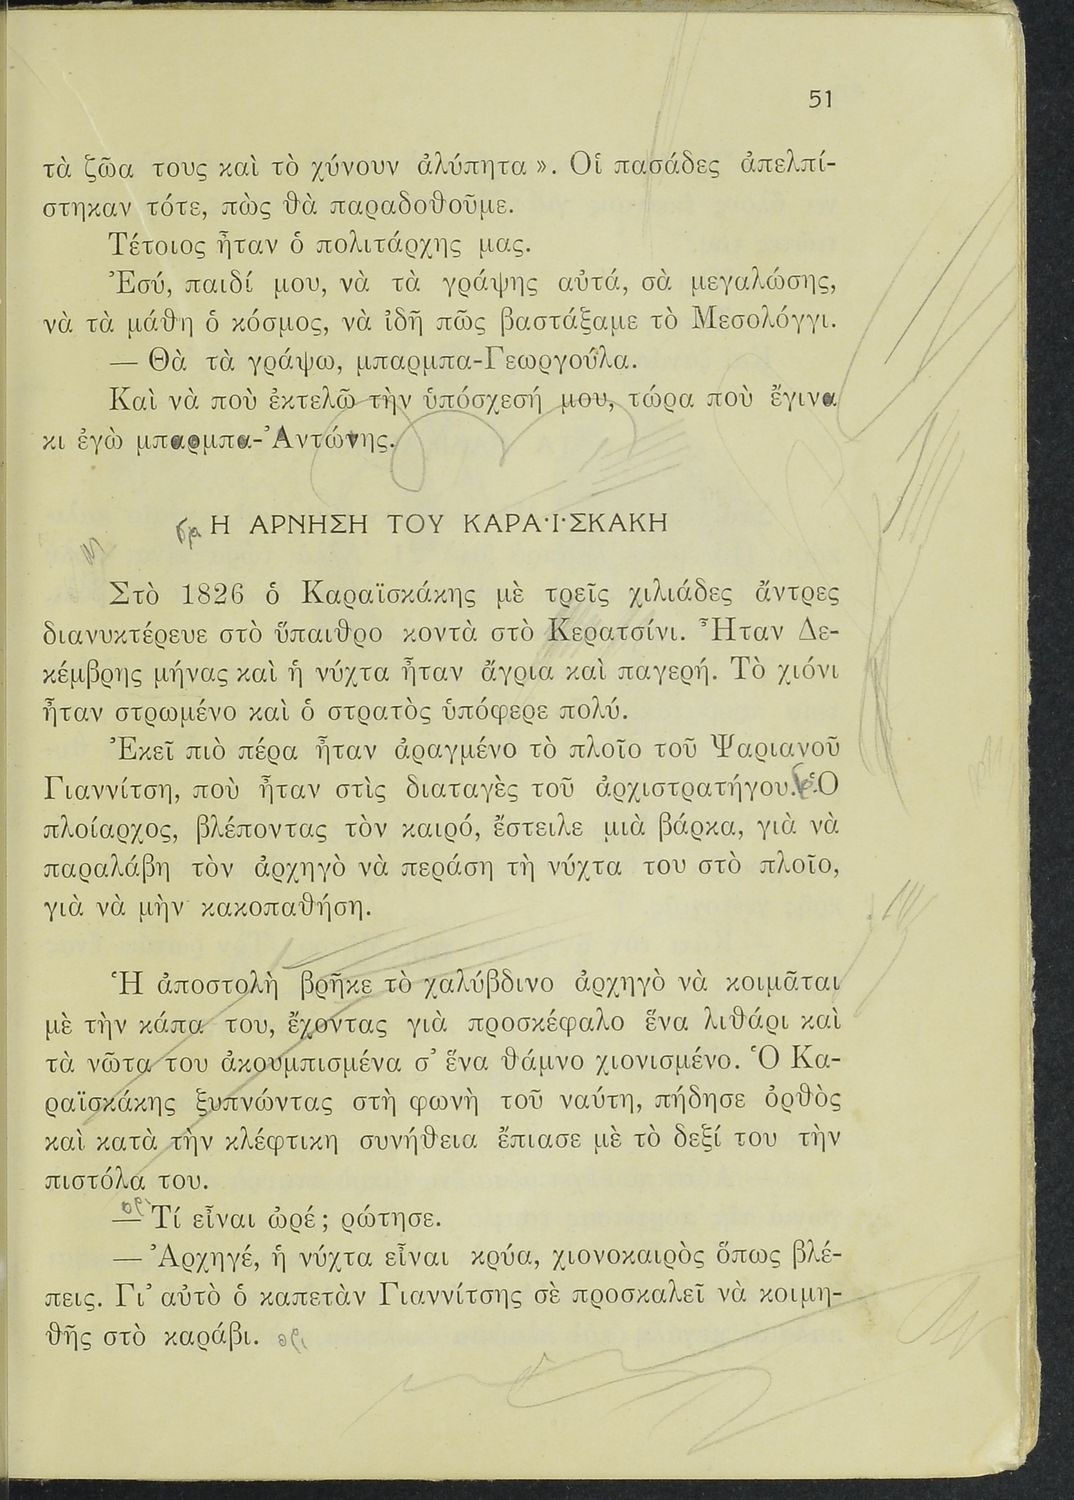 51
τὰ ζῶα τους καὶ τὸ χύνουν ἀλύπητα ». Οἱ πασάδες ἀπελπί-
στηκαν τότε, πὼς θὰ παραδοθοῦμε.
Τέτοιος ἦταν ὁ πολιτάρχης μας.
Ἐσύ, παιδί μου, νὰ τὰ γράψης αὐτά, σὰ μεγαλώσης,
νὰ τὰ μάθη ὁ κόσμος, νὰ ἰδῆ πῶς βαστάξαμε τὸ Μεσολόγγι.
— Θὰ τὰ γράψω, μπαρμπα-Γεωργούλα.
Καὶ νὰ ποὺ ἐκτελῶ τὴν ὑπόσχεσή μου, τώρα ποὺ ἔγινα
κι ἐγὼ μπαρμπα-Ἀντώνης.
Η ΑΡΝΗΣΗ ΤΟΥ ΚΑΡΑ·Ι·ΣΚΑΚΗ
Στὸ 1826 ὁ Καραϊσκάκης μὲ τρεῖς χιλιάδες ἄντρες
διανυκτέρευε στὸ ὕπαιθρο κοντὰ στὸ Κερατσίνι. Ἦταν Δε-
κέμβρης μήνας καὶ ἡ νύχτα ἦταν ἄγρια καὶ παγερή. Τὸ χιόνι
ἦταν στρωμένο καὶ ὁ στρατὸς ὑπόφερε πολύ.
Ἐκεῖ πιὸ πέρα ἦταν ἀραγμένο τὸ πλοῖο τοῦ Ψαριανοῦ
Γιαννίτση, ποὺ ἦταν στὶς διαταγὲς τοῦ ἀρχιστρατήγου. Ὁ
πλοίαρχος, βλέποντας τὸν καιρό, ἔστειλε μιὰ βάρκα, γιὰ νὰ
παραλάβη τὸν ἀρχηγὸ νὰ περάση τὴ νύχτα του στὸ πλοῖο,
γιὰ νὰ μὴν κακοπαθήση.
Ἡ ἀποστολὴ βρῆκε τὸ χαλύβδινο ἀρχηγὸ νὰ κοιμᾶται
μὲ τὴν κάπα του, ἔχοντας γιὰ προσκέφαλο ἕνα λιθάρι καὶ
τὰ νῶτα του ἀκουμπισμένα σ’ ἕνα θάμνο χιονισμένο. Ὁ Κα-
ραϊσκάκης ξυπνώντας στὴ φωνὴ τοῦ ναύτη, πήδησε ὀρθὸς
καὶ κατὰ τὴν κλέφτικη συνήθεια ἔπιασε μὲ τὸ δεξί του τὴν
πιστόλα του.
— Τί εἶναι ὠρέ; ρώτησε.
— Ἀρχηγέ, ἡ νύχτα εἶναι κρύα, χιονοκαιρὸς ὅπως βλέ-
πεις. Γι’ αὐτὸ ὁ καπετὰν Γιαννίτσης σὲ προσκαλεῖ νὰ κοιμη-
θῆς στὸ καράβι.